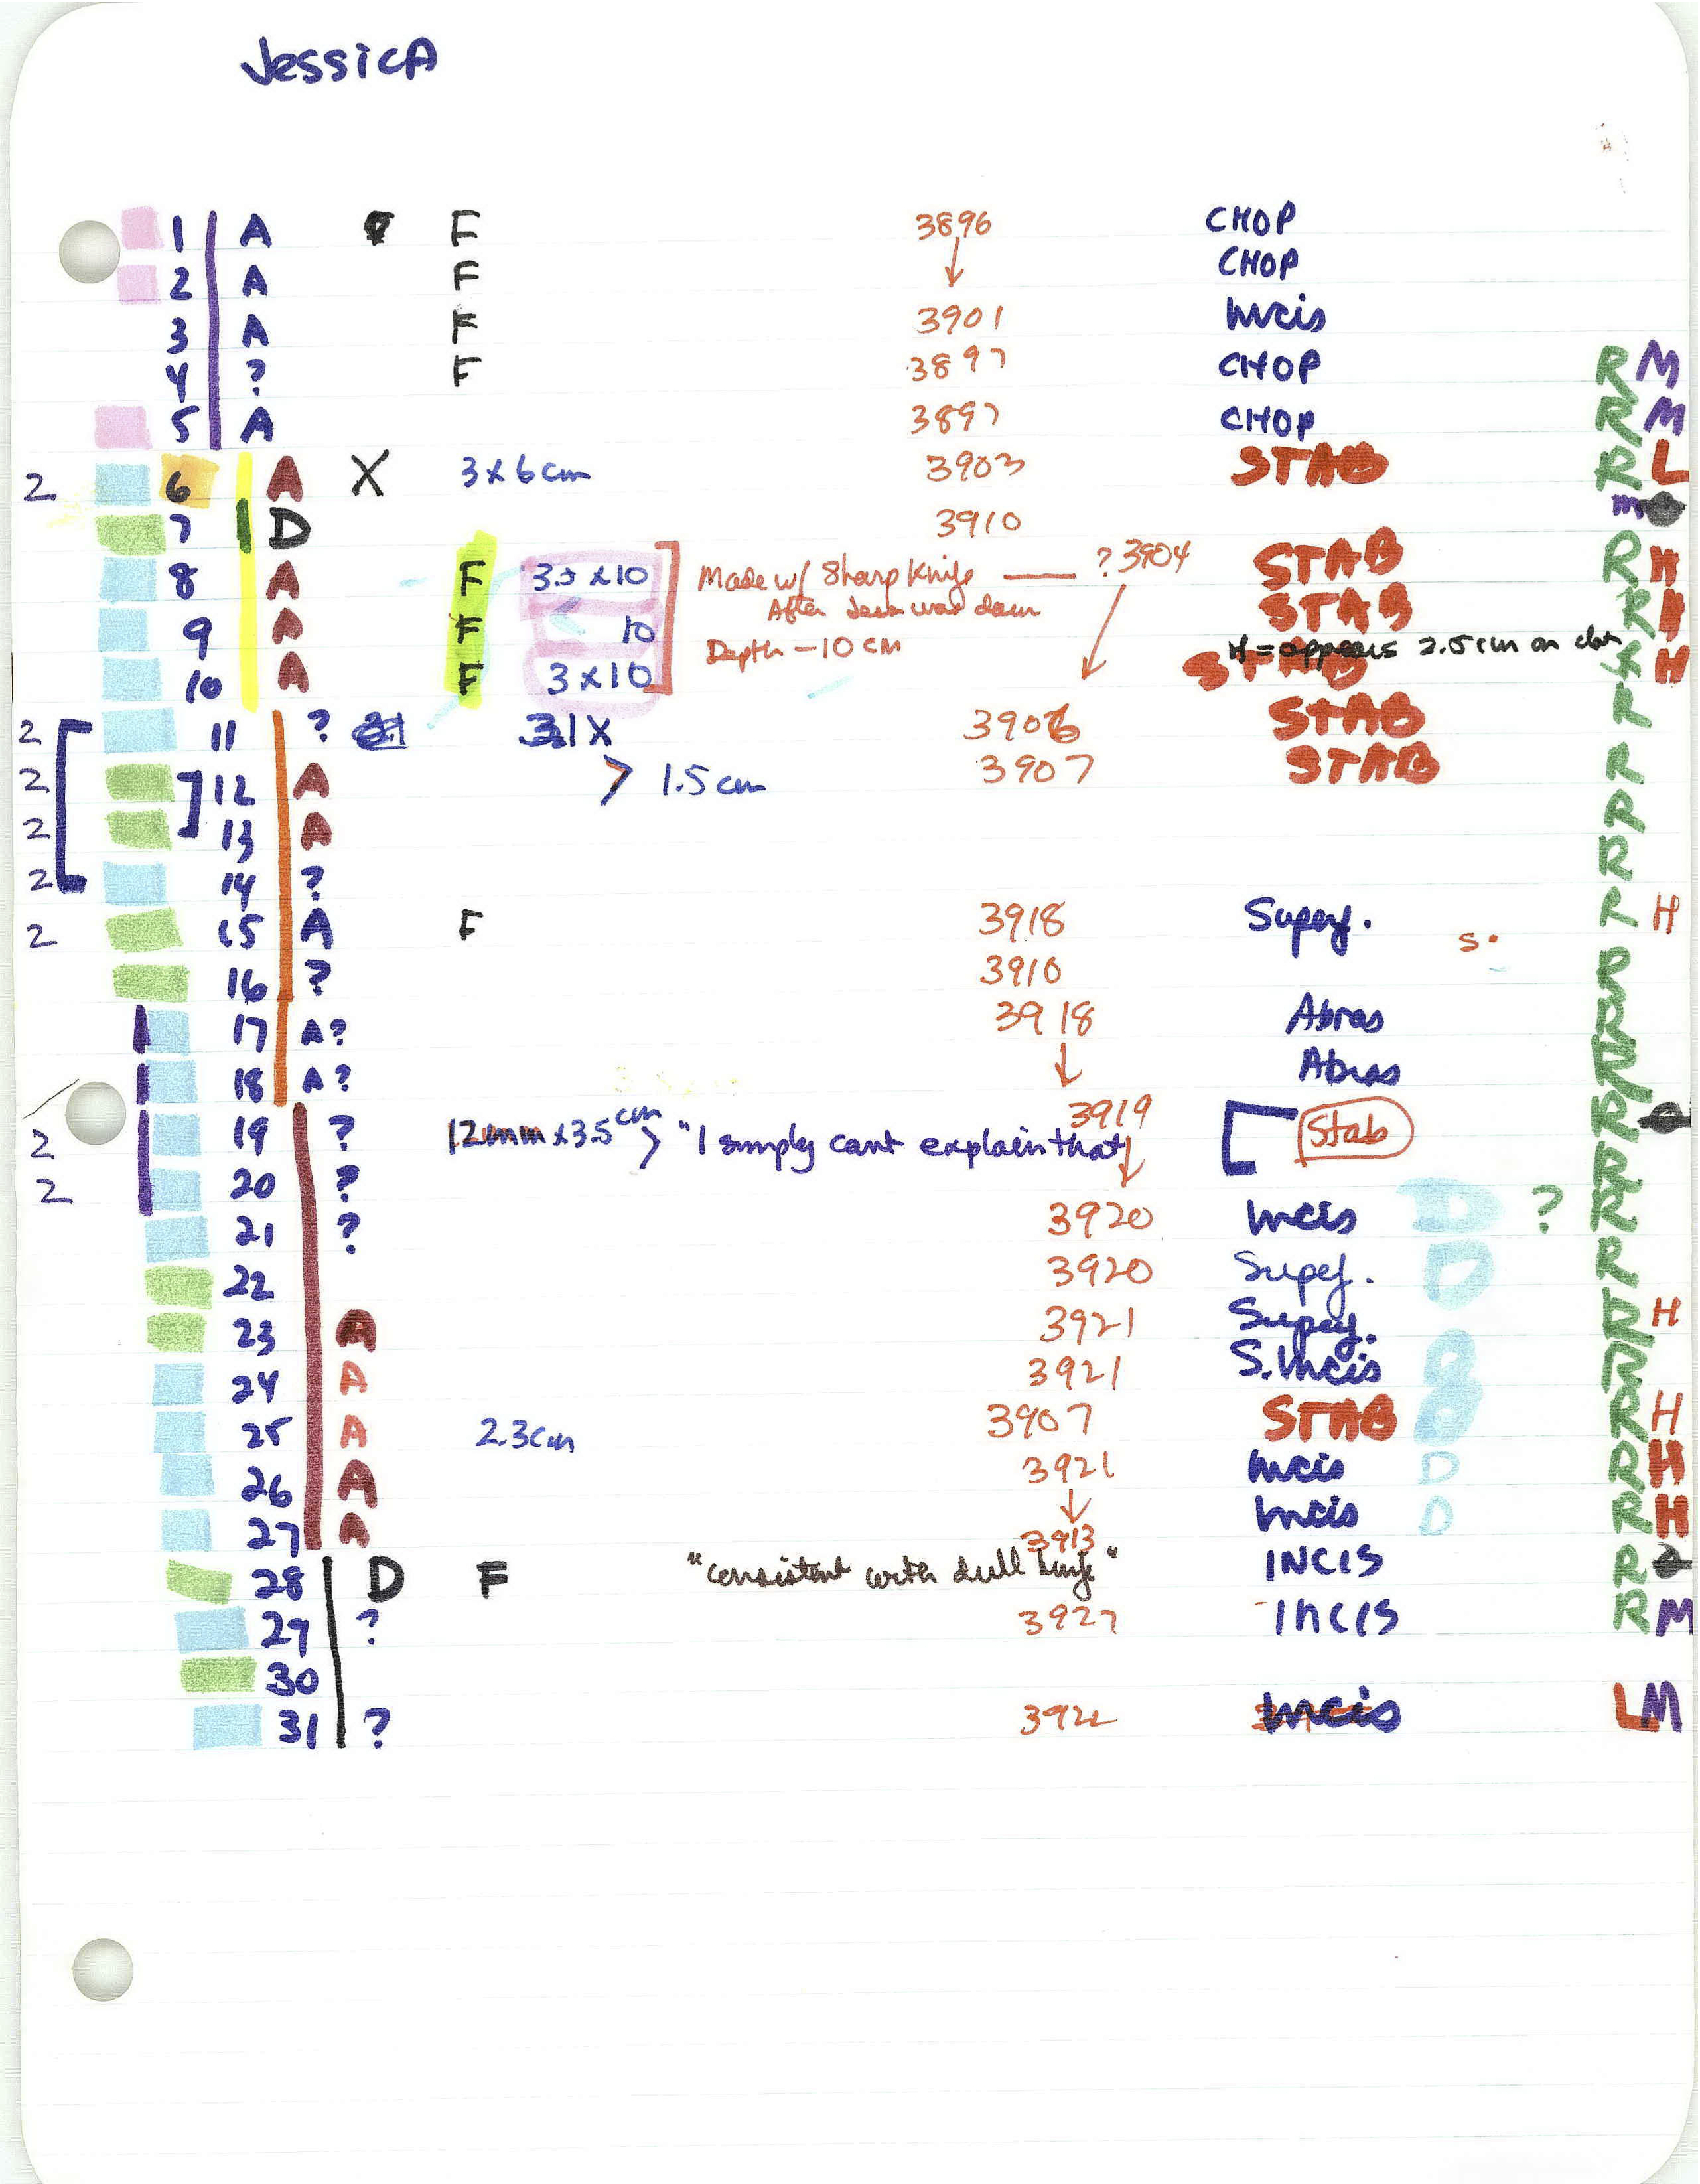 JessicA
1 A F 3896 CHOP
2 A F CHOP
3 A F 3901 Incis
4 ? F 3897 CHOP R M
5 A 3897 CHOP R M
2 6 A X 3 x 6 cm 3903 STAB R L
7 D 3910 m
8 A F 3.5 x 10 Made w/ Sharp Knife — ? 3904 STAB R H
After Jess was down
9 A F 10 Depth - 10 cm STAB R H
H = appears 2.5 cm on
10 A F 3 x 10 STAB H
2 11 ? 3.1 X 3906 STAB R
2 12 A > 1.5 cm 3907 STAB R
2 13 A R
2 14 ? R
2 15 A F 3918 Superf. S. R H
16 ? 3910 R
17 A? 3918 Abras R
18 A? Abras R
2 19 ? 12mm x 3.5 cm > "I simply cant explain that 3919 Stab R
2 20 ? R
21 ? 3920 Incis D ? R
22 3920 Superf. D R
23 A 3921 Superf. R H
24 A 3921 S. Incis R
25 A 2.3 cm 3907 STAB R H
26 A 3921 Incis D R H
27 A 3913 Incis D R H
28 D F "consistent with dull knife" INCIS R
29 ? 3927 INCIS R M
30
31 ? 392 Incis L M